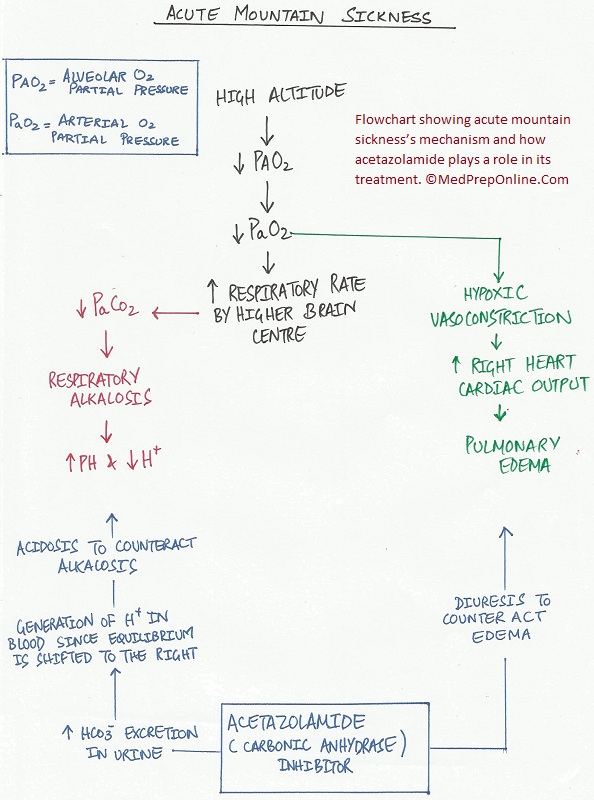 ACUTE MOUNTAIN SICKNESS
PAO2 = ALVEOLAR O2
PARTIAL PRESSURE
PaO2 = ARTERIAL O2
PARTIAL PRESSURE
HIGH ALTITUDE
Flowchart showing acute mountain
sickness's mechanism and how
acetazolamide plays a role in its
treatment. ©MedPrepOnline.Com
↓ PAO2
↓ PaO2
↑ RESPIRATORY RATE
BY HIGHER BRAIN
CENTRE
↓ PaCO2
RESPIRATORY
ALKALOSIS
↑PH & ↓H+
HYPOXIC
VASOCONSTRICTION
↑ RIGHT HEART
CARDIAC OUTPUT
PULMONARY
EDEMA
ACIDOSIS TO COUNTERACT
ALKALOSIS
GENERATION OF H+ IN
BLOOD SINCE EQUILIBRIUM
IS SHIFTED TO THE RIGHT
↑ HCO3- EXCRETION
IN URINE
ACETAZOLAMIDE
(CARBONIC ANHYDRASE)
INHIBITOR
DIURESIS TO
COUNTER ACT
EDEMA